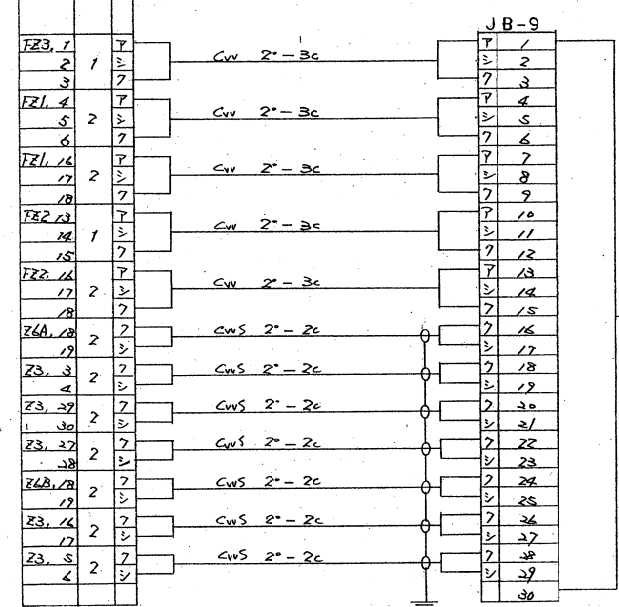 JB-9
FZ3, 1 ア CVV 2° - 3C ア 1
2 1 シ シ 2
3 フ フ 3
FZ1, 4 ア CVV 2° - 3C ア 4
5 2 シ シ 5
6 フ フ 6
FZ1, 16 ア CVV 2° - 3C ア 7
17 2 シ シ 8
18 フ フ 9
FZ2 13 ア CVV 2° - 3C ア 10
14 1 シ シ 11
15 フ フ 12
FZ2. 16 ア CVV 2° - 3C ア 13
17 2 シ シ 14
18 フ フ 15
Z6A, 18 2 フ CVVS 2° - 2C フ 16
19 シ シ 17
Z3, 3 2 フ CVVS 2° - 2C フ 18
4 シ シ 19
Z3, 29 2 フ CVVS 2° - 2C フ 20
30 シ シ 21
Z3, 27 2 フ CVVS 2° - 2C フ 22
28 シ シ 23
Z6B, 18 2 フ CVVS 2° - 2C フ 24
19 シ シ 25
Z3, 16 2 フ CVVS 2° - 2C フ 26
17 シ シ 27
Z3, 5 2 フ CVVS 2° - 2C フ 28
6 シ シ 29
30